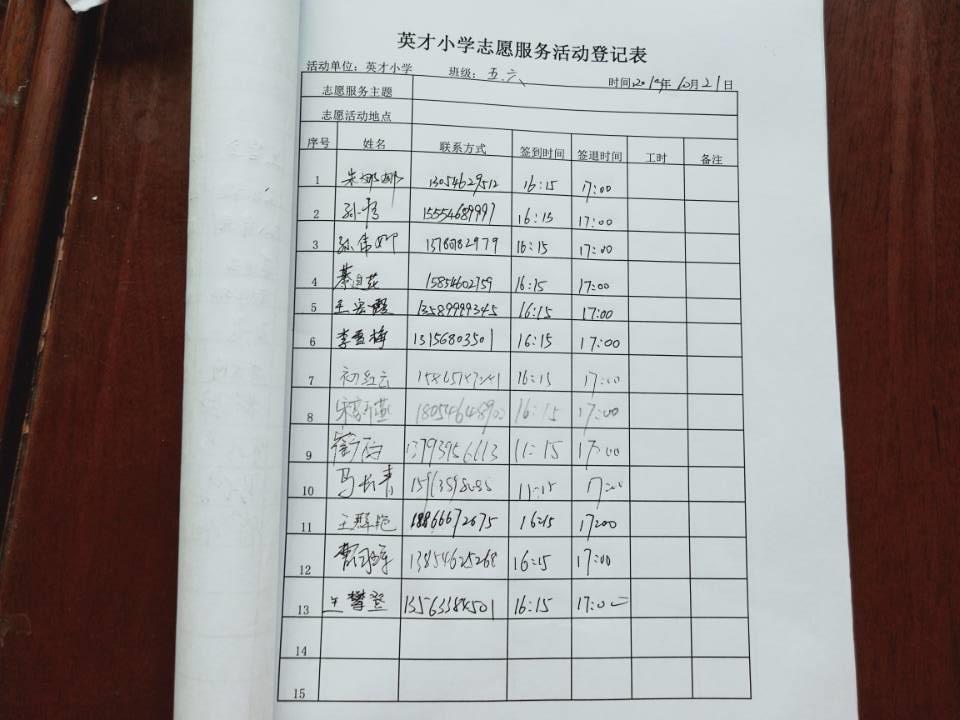 英才小学志愿服务活动登记表
活动单位：英才小学 班级：五.六 时间:2019年10月21日
志愿服务主题
志愿活动地点
序号 姓名 联系方式 签到时间 签退时间 工时 备注
1 朱娜娜 13054629512 16:15 17:00
2 15554689997 16:15 17:00
3 孙伟娜 13780782979 16:15 17:00
4 15854602759 16:15 17:00
5 王宏霞 13589999345 16:15 17:00
6 李雪梅 13156803501 16:15 17:00
7 初红云 16:15 17:00
8 16:15 17:00
9 13793956613 17:00
10 马长青
11 王群艳 18866672675 16:15 17:00
12 13854625268 16:15 17:00
13 王攀登 16:15 17:00
14
15